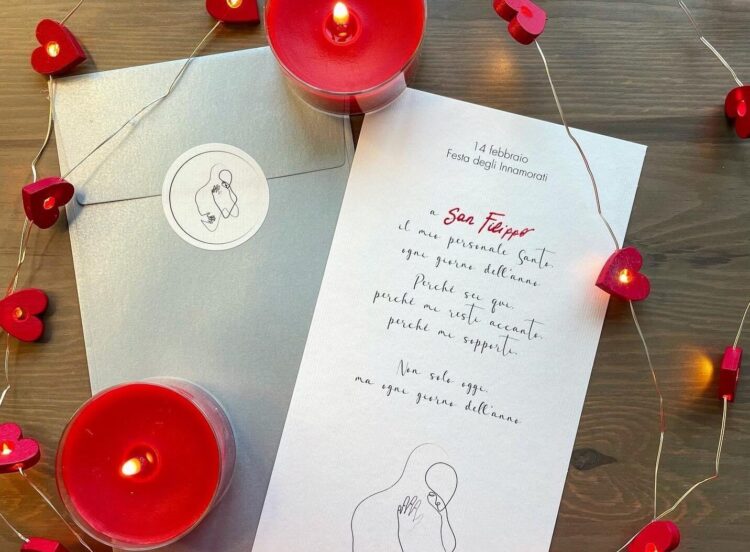 14 febbraio
Festa degli Innamorati
a San Filippo
il mio personale Santo.
ogni giorno dell'anno
Perché sei qui.
perché mi resti accanto.
perché mi sopporti.
Non solo oggi.
ma ogni giorno dell'anno